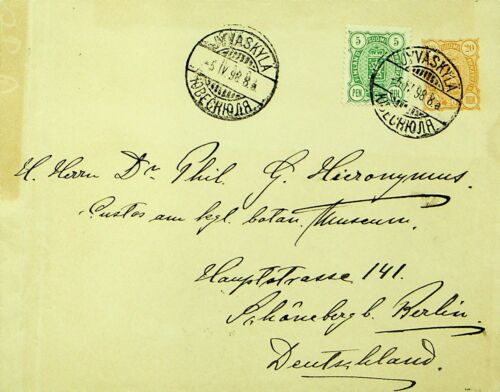 JYVÄSKYLÄ
5 IV 98. 8.a
ЮВЕСКЮЛЯ
5 5
PEN
JYVÄSKYLÄ
5 IV 98. 8.a
ЮВЕСКЮЛЯ
SUOMI 20
H. Herrn Dr. Phil. G. Hieronymus.
Custos am kgl. botan. Museum.
Hauptstrasse 141.
Schöneberg b. Berlin.
Deutschland.